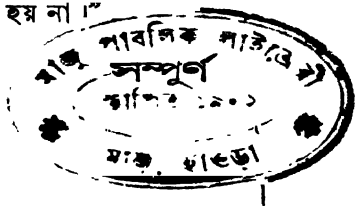 হয় না।”
মাজু পাবলিক লাইব্রেরী
সম্পূর্ণ
স্থাপিত ১৯০২
মাজু, হাওড়া